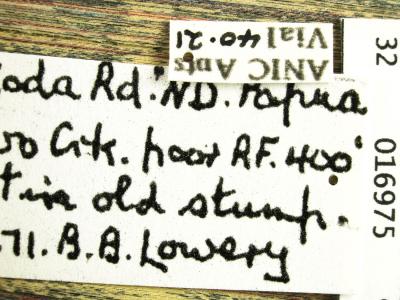 ANIC Ants
Vial 40.21
oda Rd. ND. Papua
Crk. poor RF. 400'
in old stump.
71. B.B. Lowery
32 016975